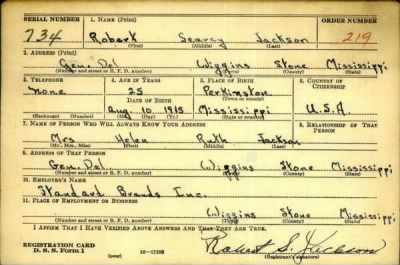 SERIAL NUMBER 1. NAME (Print) ORDER NUMBER
734 Robert Searcy Jackson 219
(First) (Middle) (Last)
2. ADDRESS (Print)
Gen. Del Wiggins Stone Mississippi
(Number and street or R. F. D. number) (Town) (County) (State)
3. TELEPHONE 4. AGE IN YEARS 5. PLACE OF BIRTH 6. COUNTRY OF CITIZENSHIP
None 25 Perkinston
DATE OF BIRTH
Aug 10 1915 Mississippi U.S.A
(Exchange) (Number) (Mo.) (Day) (Yr.) (State or country)
7. NAME OF PERSON WHO WILL ALWAYS KNOW YOUR ADDRESS 8. RELATIONSHIP OF THAT PERSON
Mrs Helen Ruth Jackson
(Mr., Mrs., Miss) (First) (Middle) (Last)
9. ADDRESS OF THAT PERSON
Gen. Del Wiggins Stone Mississippi
(Number and street or R. F. D. number) (Town) (County) (State)
10. EMPLOYER'S NAME
Standard Brands Inc.
11. PLACE OF EMPLOYMENT OR BUSINESS
Wiggins Stone Mississippi
(Number and street or R. F. D. number) (Town) (County) (State)
I AFFIRM THAT I HAVE VERIFIED ABOVE ANSWERS AND THAT THEY ARE TRUE.
REGISTRATION CARD
D. S. S. Form 1 (over) Robert S. Jackson
(Registrant's signature)